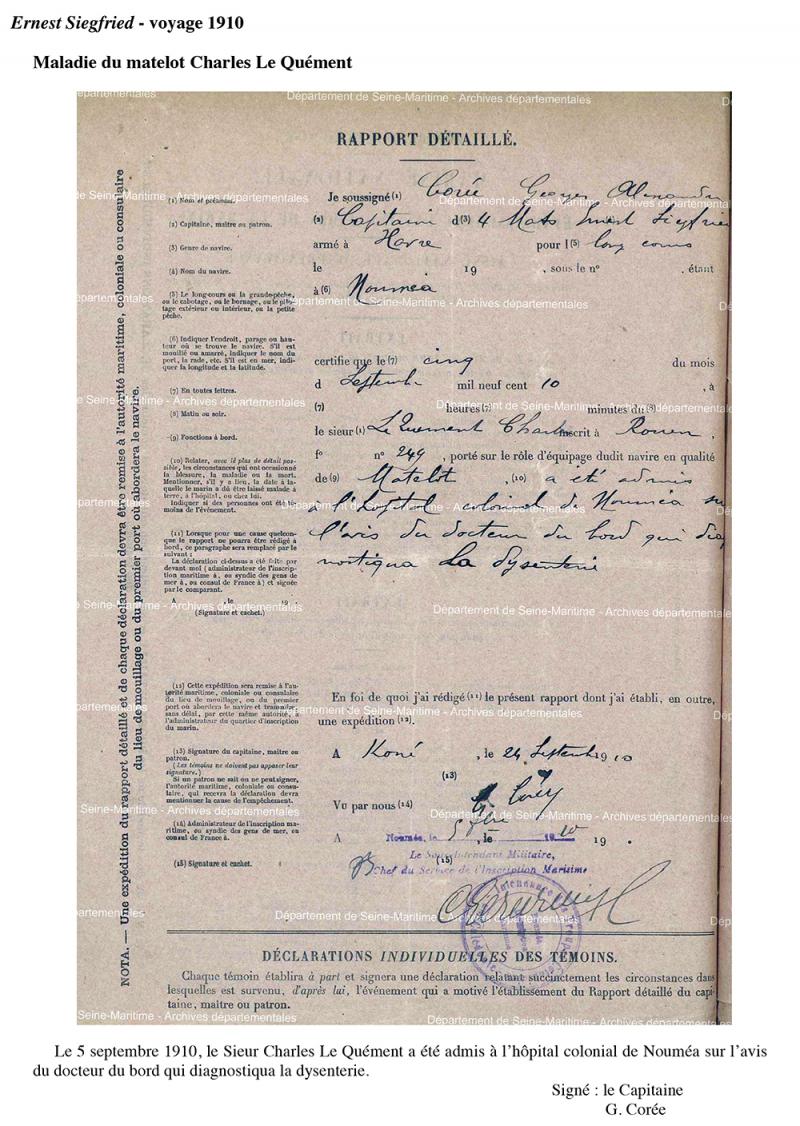 Ernest Siegfried - voyage 1910
Maladie du matelot Charles Le Quément
Département de Seine-Maritime - Archives départementales
RAPPORT DÉTAILLÉ.
NOTA. — Une expédition du rapport détaillé et de chaque déclaration devra être remise à l'autorité maritime, coloniale ou consulaire
du lieu de mouillage ou du premier port où abordera le navire.
(1) Nom et prénoms.
(2) Capitaine, maître ou patron.
(3) Genre de navire.
(4) Nom du navire.
(5) Le long-cours ou la grande-pêche,
ou le cabotage, ou le bornage, ou le pilo-
tage extérieur ou intérieur, ou la petite
pêche.
(6) Indiquer l'endroit, parage ou hau-
teur où se trouve le navire. S'il est
mouillé ou amarré, indiquer le nom du
port, la rade, etc. S'il est en mer, indi-
quer la longitude et la latitude.
(7) En toutes lettres.
(8) Matin ou soir.
(9) Fonctions à bord.
(10) Relater, avec le plus de détail pos-
sible, les circonstances qui ont occasionné
la blessure, la maladie ou la mort.
Mentionner, s'il y a lieu, la date à la-
quelle le marin a dû être laissé malade à
terre, à l'hôpital, ou chez lui.
Indiquer si des personnes ont été té-
moins de l'événement.
(11) Lorsque pour une cause quelcon-
que le rapport ne pourra être rédigé à
bord, ce paragraphe sera remplacé par le
suivant :
La déclaration ci-dessus a été faite par
devant moi (administrateur de l'inscrip-
tion maritime à, ou syndic des gens de
mer à, ou consul de France à) et signée
par le comparant.
A , le 19 .
(Signature et cachet.)
(12) Cette expédition sera remise à l'au-
torité maritime, coloniale ou consulaire
du lieu de mouillage, ou du premier
port où abordera le navire et transmise
sans délai, par cette même autorité, à
l'administrateur du quartier d'inscription
du marin.
(13) Signature du capitaine, maître ou
patron.
(Les témoins ne doivent pas apposer leur
signature.)
Si un patron ne sait ou ne peut signer,
l'autorité maritime, coloniale ou consu-
laire, qui recevra la déclaration devra
mentionner la cause de l'empêchement.
(14) Administrateur de l'inscription ma-
ritime, ou syndic des gens de mer, ou
consul de France à.
(15) Signature et cachet.
Je soussigné (1) Corée Georges Alexandre
(2) Capitaine d(3) 4 Mats Ernest Siegfried
armé à Havre pour l(5) long cours
le 19 , sous le n° , étant
à (6) Nouméa
certifie que le (7) cinq du mois
d Septembre mil neuf cent 10 , à
(7) heures (7) minutes du (8)
le sieur (1) Le Quément Charles inscrit à Rouen ,
f° n° 249 , porté sur le rôle d'équipage dudit navire en qualité
de (9) Matelot , (10) a été admis
à l'hôpital colonial de Nouméa sur
l'avis du docteur du bord qui diag
nostiqua la dysenterie
En foi de quoi j'ai rédigé (11) le présent rapport dont j'ai établi, en outre,
une expédition (12).
A Koné , le 24 Septembre 1910
(13)
G. Corée
Vu par nous (14)
A Nouméa, le , le 1910 19 .
(15)
Le Sous-Intendant Militaire,
Chef du Service de l'Inscription Maritime
DÉCLARATIONS INDIVIDUELLES DES TÉMOINS.
Chaque témoin établira à part et signera une déclaration relatant succinctement les circonstances dans
lesquelles est survenu, d'après lui, l'événement qui a motivé l'établissement du Rapport détaillé du capi-
taine, maître ou patron.
Le 5 septembre 1910, le Sieur Charles Le Quément a été admis à l'hôpital colonial de Nouméa sur l'avis
du docteur du bord qui diagnostiqua la dysenterie.
Signé : le Capitaine
G. Corée